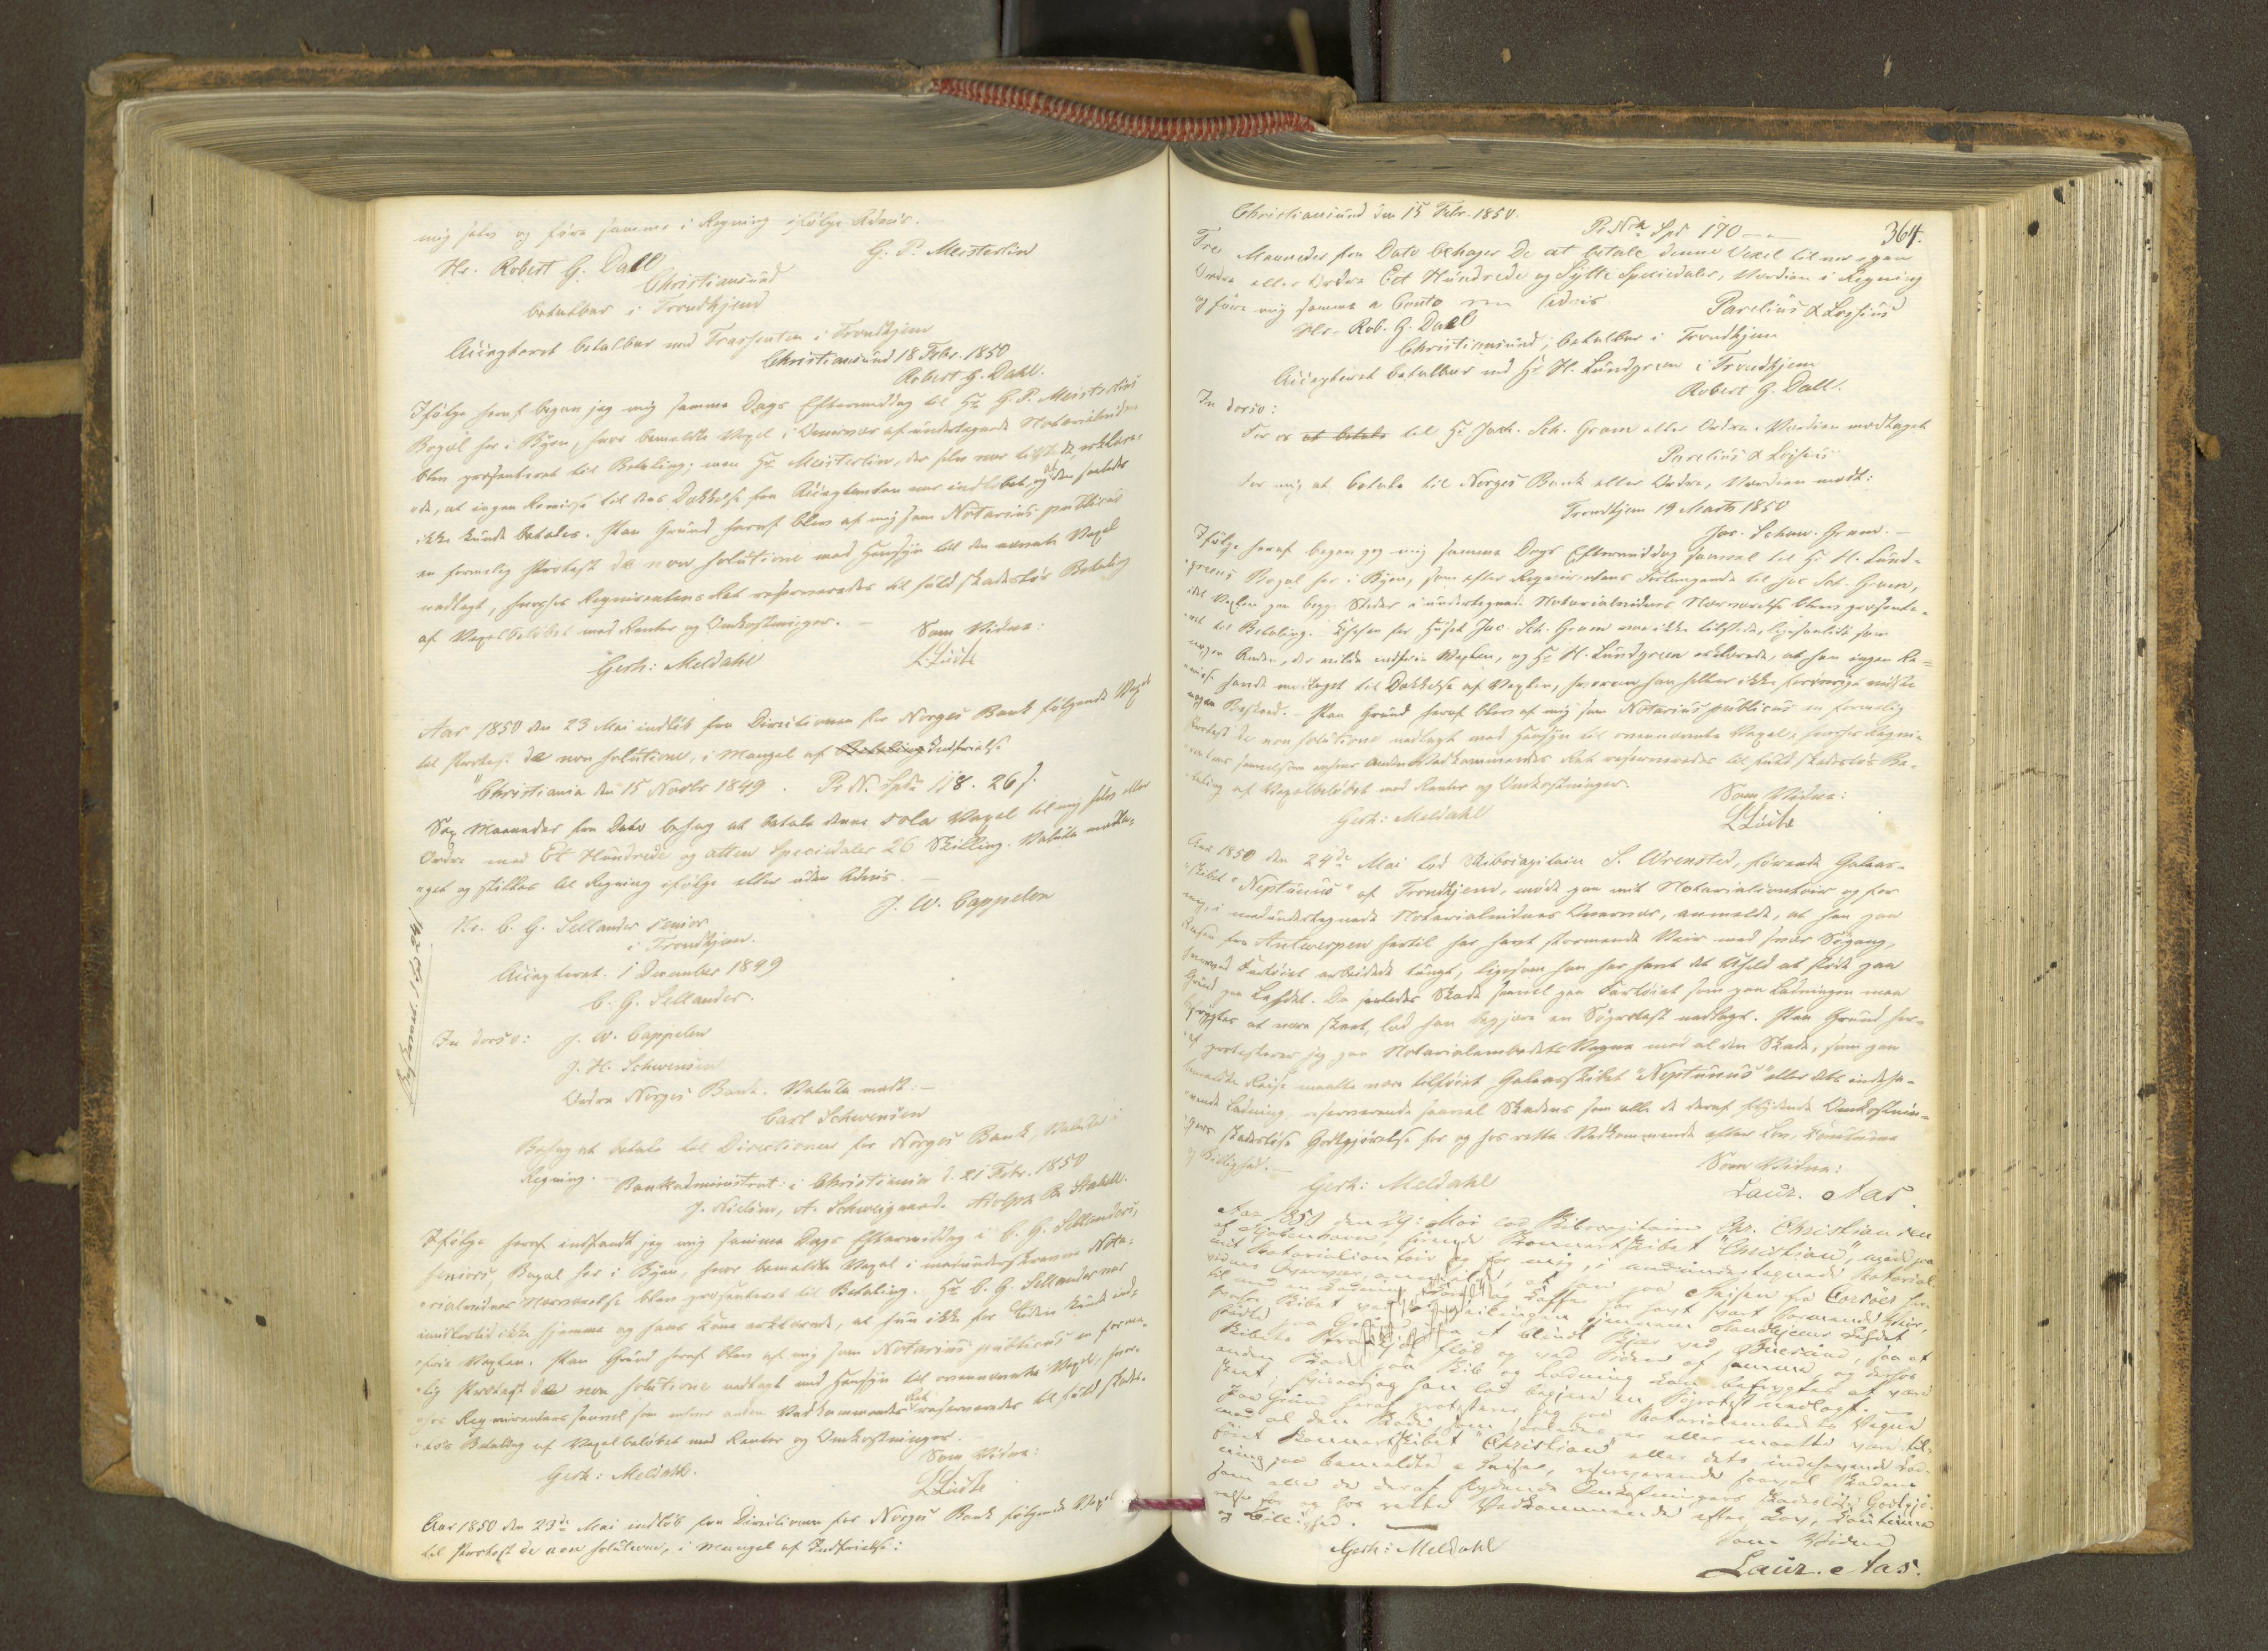 mig selv og føre samme i Regning ifølge Advis.
G. P. Meisterlin
Hr. Robert G. Dall
Christiansund
betalbar i Trondhjem
Accepteret betalbar ved Trassenten i Trondhjem
Christiansund 18 Febr. 1850
Robert G. Dahl.
Ifølge heraf begav jeg mig samme Dags Eftermiddag til Hr. G. P. Meisterlins
Bopæl her i Byen, hvor bemeldte Vexel i Overvær af undertegnede Notarialvidne
blev præsenteret til Betaling; men Hr. Meisterlin, der selv var tilstede, erklære-
de, at ingen Remisse til dens Dækkelse fra Acceptanten var indløbet, og at den saaledes
ikke kunde betales. Paa Grund heraf blev af mig som Notarius publicus
en formelig Protest de non solutione med Hensyn til den nævnte Vexel
nedlagt, hvorhos Reqvirentens Ret reserveredes til fuld skadesløs Betaling
af Vexelbeløbet med Renter og Omkostninger. —
Som Vidne:
Gerh: Meldahl
L Lüste
Aar 1850 den 23 Mai indløb fra Directionen for Norges Bank følgende Vexel
til Protest de non solutione, i Mangel af Betaling Indfrielse
"Christiania den 15 Novbr 1849. Pr. N. Spd. 118. 26 s.
Sex Maaneder fra Dato behag at betale denne sola Vexel til mig selv eller
Ordre med Et Hundrede og atten Speciedaler 26 Skilling. Valuta modta-
get og stilles til Regning ifølge eller uden Advis. —
J. W. Cappelen
Hr. C. G. Sellander senior
i Trondhjem.
Accepteret. 1 December 1849
C. G. Sellander.
In dorso: J. W. Cappelen
J. H. Schwensen
Ordre Norges Bank. Valuta modt: —
Carl Schwensen
Behag at betale til Directionen for Norges Bank, Valuta i
Regning. — Bankadministrat: i Christiania d. 21 Febr. 1850
J. Nielsen, A. Schweigaard. Adolph B. Stabell.
Ifølge heraf indfandt jeg mig samme Dags Eftermiddag i C. G. Sellanders,
seniors, Bopæl her i Byen, hvor bemeldte Vexel i medunderskrevne Nota-
rialvidnes Nærværelse blev præsenteret til Betaling. Hr. C. G. Sellander var
imidlertid ikke hjemme og hans Kone erklærede, at hun ikke for Tiden kunde ind-
frie Vexlen. Paa Grund heraf blev af mig som Notarius publicus en forme-
lig Protest de non solutione nedlagt med Hensyn til ovennævnte Vexel, hvor-
hos Reqvirentens saavel som enhver anden Vedkommendes Ret reserveredes til fuld skades-
løs Betaling af Vexelbeløbet med Renter og Omkostninger.
Som Vidne:
Gerh: Meldahl.
L Lüste
Aar 1850 den 23de Mai indløb fra Directionen for Norges Bank følgende Vexel
til Protest de non solutione, i Mangel af Indfrielse:
Christiansund den 15 Febr. 1850.
364.
Pr. Nra Spd 170 — „
Tre Maaneder fra Dato behager De at betale denne Vexel til vor egen
Ordre eller Ordre Et Hundrede og Sytti Speciedaler, Værdien i Regning
og føre mig samme a Conto Advis.
Parelius & Lossius
Hr. Rob. G. Dall
Christiansund; betalbar i Trondhjem
Accepteret betalbar ved Hr. H. Lundgreen i Trondhjem
Robert G. Dall.
In dorso:
For os at betale til Hr. Jach. Sch. Gram eller Ordre. Værdien modtaget
Parelius & Lossius
For mig at betale til Norges Bank eller Ordre, Værdien modt:
Trondhjem 19 Marts 1850
Jac. Schav. Gram. —
Ifølge heraf begav jeg mig samme Dags Eftermiddag saavel til Hr. H. Lund-
greens Bopæl her i Byen, som efter Reqvirentens Forlangende til Jac Sch. Gram,
idet Vexlen paa begge Steder i undertegnede Notarialvidnes Nærværelse blev præsente-
ret til Betaling. Chefen for Huset Jac. Sch. Gram var ikke tilstede, ligesaalidt som
nogen Anden, der vilde indfrie Vexlen, og Hr. H. Lundgreen erklærede, at han ingen Re-
misse havde modtaget til Dækkelse af Vexlen, hvorom han heller ikke forøvrigt vidste
nogen Besked. — Paa Grund heraf blev af mig som Notarius publicus en formelig
Protest de non solutione nedlagt med Hensyn til ovennævnte Vexel, hvorhos Reqvi-
rentens saavelsom enhver anden Vedkommendes Ret reserveredes til fuld skadesløs Be-
taling af Vexelbeløbet med Renter og Omkostninger.
Som Vidne:
Gerh: Meldahl
L Lüste
Aar 1850 den 24de Mai lod Skibscapitain S. Wrensted, førende Galeas-
skibet "Neptunus" af Trondhjem, møde paa mit Notarialcontoir og for
mig, i medundertegnede Notarialvidnes Overvær, anmelde, at han paa
Reisen fra Antwerpen hertil har havt stormende Veir med svær Søgang,
hvorved Fartøiet arbeidede tungt, ligesom han har havt det Uheld at støde paa
Grund paa Lefdet. Da saaledes Skade saavel paa Fartøiet som paa Ladningen maa
befrygtes at være skeet, lod han begjære en Søprotest nedlagt. Paa Grund her-
af protesterer jeg paa Notarialembedets Vegne mod al den Skade, som paa
bemeldte Reise maatte være tilføiet Galeasskibet "Neptunus" eller dets indeha-
vende Ladning, reserverende saavel Skadens som alle de deraf flydende Omkostnin-
gers skadesløse Godtgjørelse for og hos rette Vedkommende efter Lov, Coutume
og Billighed. —
Som Vidne:
Gerh: Meldahl
Laur. Aas.
Aar 1850 den 29: Mai lod Skibscapitain Chr. Christiansen
af Kjøbenhavn, førende Skonnertskibet "Christian", møde paa
mit Notarialcontoir og for mig, i medundertegnede Notarial-
vidnes Overvær, anmelde, at han paa Reisen fra Corsøer her-
til med en Ladning og Kaffe har havt svart stormende Veir,
hvorfor Skibet Seilingen gjennem Trondhjems Leedet
stødte paa Grund paa et blindt Skjær ved , saa at
Skibets Straakjøl flød op ved Siden af samme, og derfor
anden Skade paa Skib og Ladning kan befrygtes at være
skeet; hvisaarsag han lod begjære en Søprotest nedlagt. —
Paa Grund heraf protesterer jeg paa Notarialembedets Vegne
mod al den Skade som saaledes er eller maatte være til-
føiet Skonnertskibet "Christian" eller dets indehavende Lad-
ning paa bemeldte Reise, reserverende saavel Skadens
som alle de deraf flydende Omkostningers skadesløse Godtgjø-
relse for og hos rette Vedkommende efter Lov, Coutume
og Billighed. —
Som Vidne
Gerh: Meldahl
Laur. Aas.